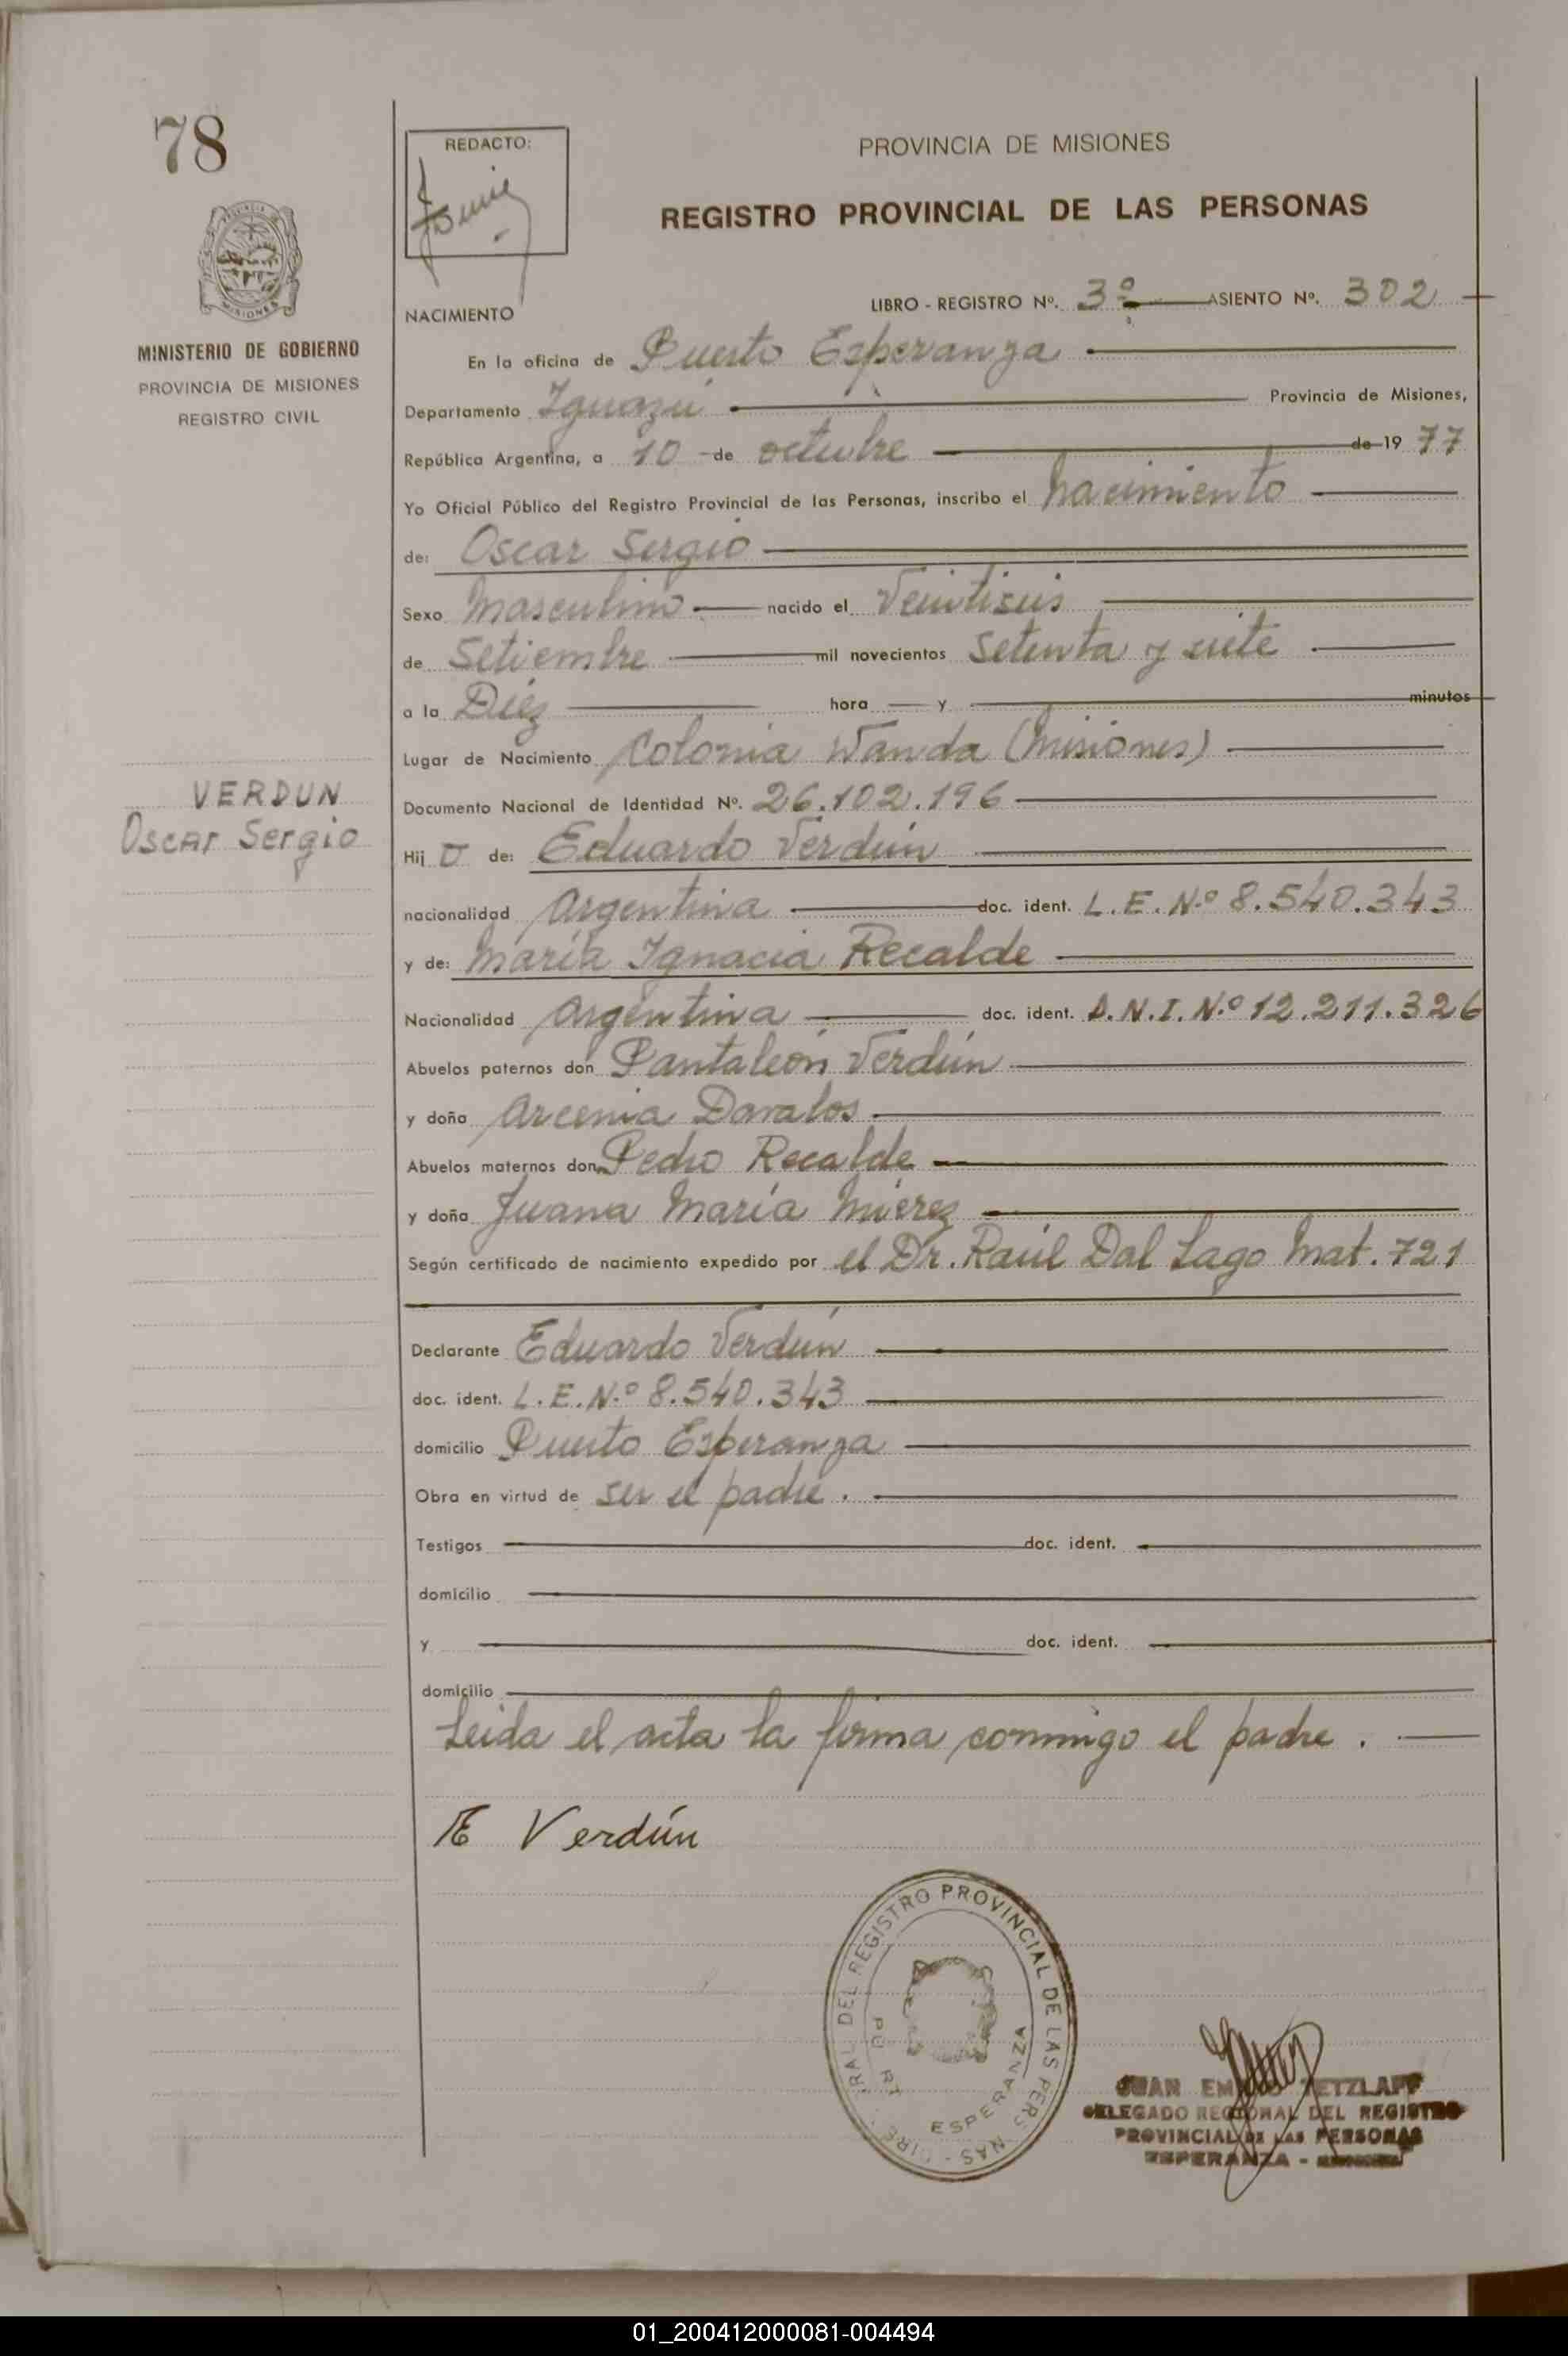 78
REDACTO:
PROVINCIA DE MISIONES
REGISTRO PROVINCIAL DE LAS PERSONAS
MISIONES
MINISTERIO DE GOBIERNO
PROVINCIA DE MISIONES
REGISTRO CIVIL
VERDUN
Oscar Sergio
NACIMIENTO
LIBRO - REGISTRO Nº. 3º ASIENTO Nº. 302
En la oficina de Puerto Esperanza
Departamento Iguazú Provincia de Misiones,
República Argentina, a 10 de octubre de 19 77
Yo Oficial Público del Registro Provincial de las Personas, inscribo el nacimiento
de: Oscar Sergio
Sexo Masculino nacido el Veintiseis
de Setiembre mil novecientos setenta y siete
a la Diez hora y minutos
Lugar de Nacimiento Colonia Wanda (Misiones)
Documento Nacional de Identidad Nº. 26.102.196
Hij o de: Eduardo Verdún
nacionalidad Argentina doc. ident. L.E.Nº 8.540.343
y de: María Ignacia Recalde
Nacionalidad Argentina doc. ident. D.N.I.Nº 12.211.326
Abuelos paternos don Pantaleón Verdún
y doña Arcenia Davalos
Abuelos maternos don Pedro Recalde
y doña Juana María Mierez
Según certificado de nacimiento expedido por el Dr. Raúl Dal Lago Mat. 721
Declarante Eduardo Verdún
doc. ident. L.E.Nº 8.540.343
domicilio Puerto Esperanza
Obra en virtud de ser el padre.
Testigos doc. ident.
domicilio
y doc. ident.
domicilio
Leida el acta la firma conmigo el padre.
E Verdún
DEL REGISTRO PROVINCIAL DE LAS PERS NAS - DIRE
ESPERANZA
JUAN EM ETZLAFF
DELEGADO REGIONAL DEL REGISTRO
PROVINCIAL DE LAS PERSONAS
ESPERANZA -
01_200412000081-004494